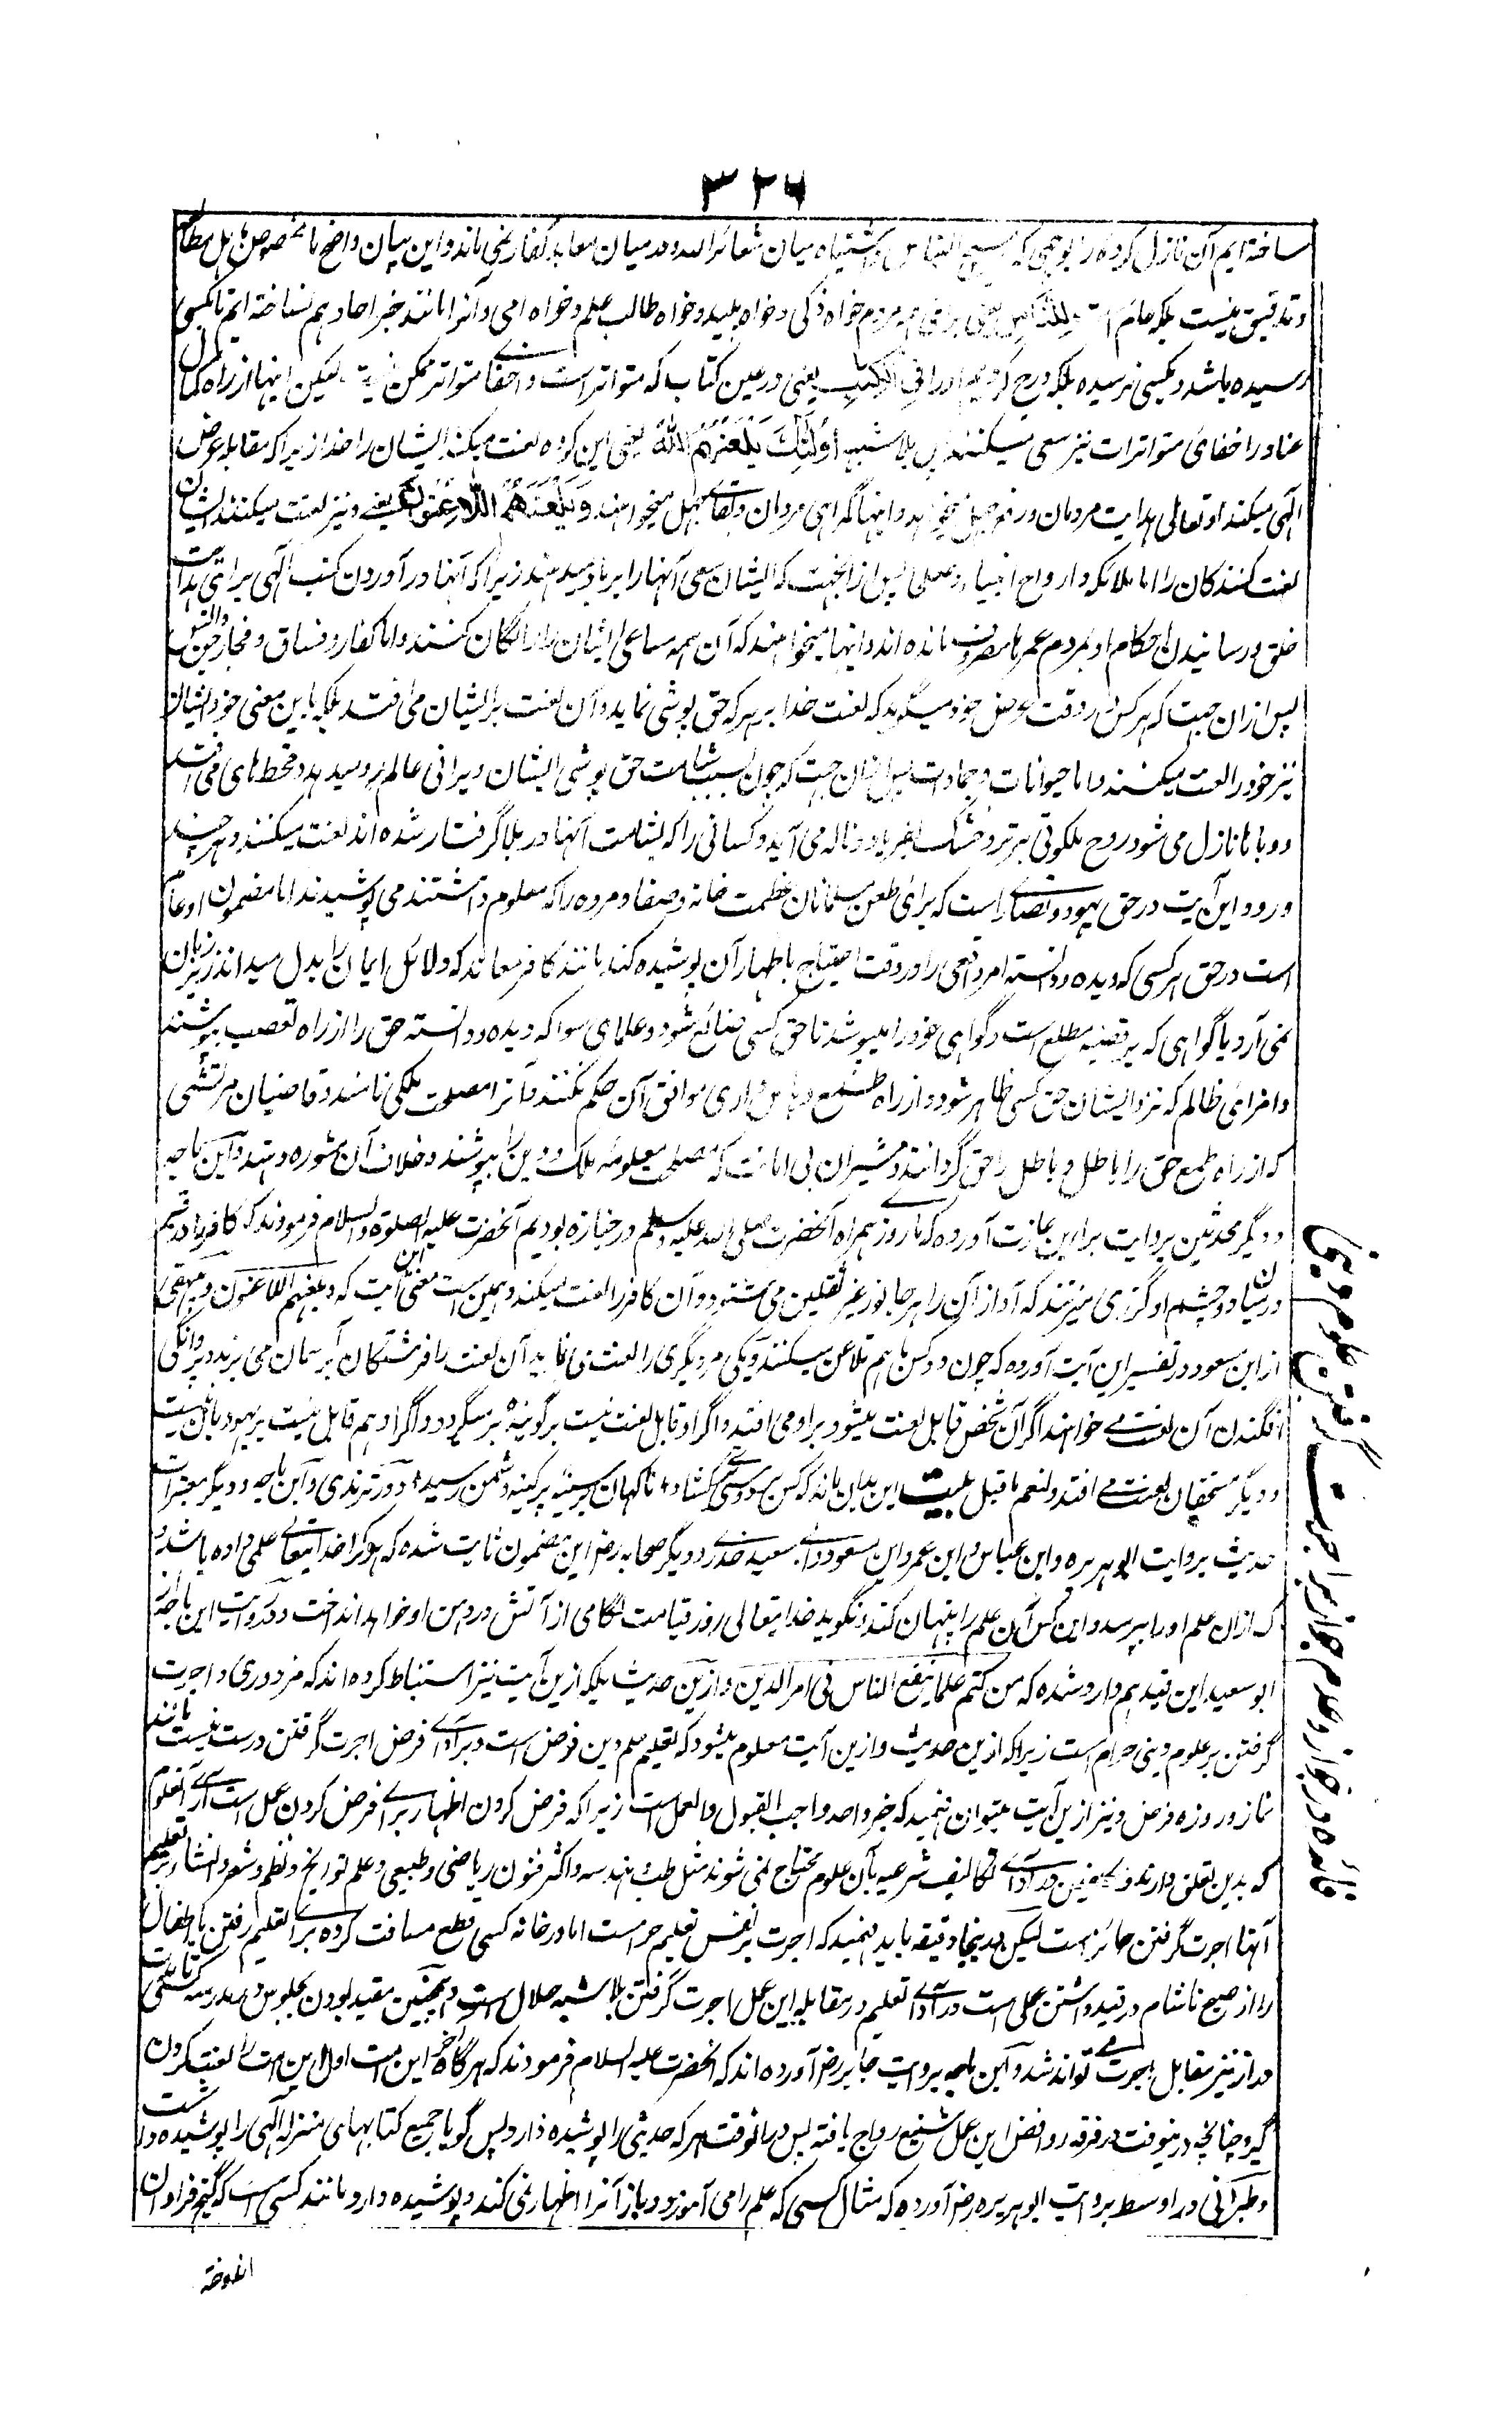 ۳۲۶
ساخته ایم آن نازل کرده را بوجهی که هیچ التباس و اشتباه میان شعائر الله و درمیان معابد کفار نمی ماند و این بیان واضح ما مخصوص باهل مطالعه
و تدقیق نیست بلکه عام است لِلنَّاسِ یعنی برای همه مردم خواه ذکی و خواه بلید و خواه طالب علم و خواه امی و آنرا مانند خبر احاد هم نساخته ایم تا بکسی
رسیده باشد و بکسی نرسیده بلکه درج کرده ایم او را فِي الْكِتٰبِ یعنی در عین کتاب که متواتر است و اخفای متواتر ممکن نیست لیکن اینها از راه کمال
عناد در اخفای متواترات نیز سعی میکنند پس بلا شبهه أُولٰئِكَ يَلْعَنُهُمُ اللهُ یعنی این گروه لعنت میکند ایشان را خدا زیرا که مقابله غرض
الهی میکنند او تعالی هدایت مردمان و رفع جهل میخواهد و اینها گمراهی مردمان و بقای جهل میخواهند وَيَلْعَنُهُمُ اللّٰعِنُوْنَ یعنی و نیز لعنت میکنند ایشان را
لعنت کنندگان را اما ملائکه و ارواح انبیاء و علما پس از آنجهت که ایشان سعی آنها را برباد میدهند زیرا که آنها در آوردن کتب الهی برای هدایت
خلق و رسانیدن احکام او بمردم عمرها مصروف مانده اند و اینها میخواهند که آن همه مساعی ایشان را رائگان کنند و اما کفار و فساق و فجار جن و انس
پس ازان جهت که هر کس در وقت عوض خود میگوید که لعنت خدا بر هر که حق پوشی نماید و آن لعنت بر ایشان می افتد بلکه باین معنی خود ایشان
نیز خود را لعنت میکنند و اما حیوانات و جمادات پس ازان جهت که چون بسبب شامت حق پوشی ایشان ویرانی عالم رو میدهد و قحط های می افتد
و وبا ها نازل می شود روح ملکوتی هر تر و خشک بفریاد و ناله می آید و کسانی را که بشامت آنها در بلا گرفتار شده اند لعنت میکنند و هر چند
ورود این آیت در حق یهود و نصاری است که برای طعن مسلمانان عظمت خانه و صفا و مروه را که معلوم داشتند می پوشیدند اما مضمون او عام
است در حق هر کسی که دیده و دانسته امر واقعی را در وقت احتیاج باظهار آن پوشیده کند مانند کافر معاند که دلائل ایمان را بدل میداند و بزبان
نمی آرد یا گواهی که بر قضیه مطلع است و گواهی خود را میپوشد تا حق کسی ضائع شود و علمای سوا که دیده و دانسته حق را از راه تعصب بپوشند
و امرای ظالم که نزد ایشان حق کسی ظاهر شود و از راه طمع و پاس داری موافق آن حکم نکنند و آنرا مصلحت ملکی نامند و قاضیان مرتشی
که از راه طمع حق را باطل و باطل را حق گردانند و مشیران بی امانت که مصلحت معلومه ملک و دین را بپوشند و خلاف آن مشوره دهند و ابن ماجه
و دیگر محدثین بروایت براء بن عازب آورده که ما روزی همراه آنحضرت صلی الله علیه و سلم در جنازه بودیم آنحضرت علیه الصلوة والسلام فرمودند که کافر را در قبر
درمیان دو چشم او گرزی میزنند که آواز آن را هر جانور غیر ثقلین می شنود و آن کافر را لعنت میکند و همین است معنی این آیت که و یلعنهم اللاعنون و بیهقی
از ابن مسعود در تفسیر این آیت آورده که چون دو کس باهم تلاعن میکنند و یکی مر دیگری را لعنت می نماید آن لعنت را فرشتگان بر آسمان می برند و پروانگی
افگندن آن لعنت می خواهند اگر آن شخص قابل لعنت میشود بر او می افتد و اگر او قابل لعنت نیست بر گوینده بر میگردد و اگر او هم قابل نیست بر یهود باین جهت
و دیگر مستحقان لعنت می افتد و لنعم ما قیل بیت این بدان ماند که کس بر دوستی گشاد ناگهان بر سینه پر کینه دشمن رسید و در ترمذی و ابن ماجه و دیگر معتبرات
حدیث بروایت ابو هریره و ابن عباس و ابن عمر و ابن مسعود و ابی سعید خدری و دیگر صحابه رض این مضمون ثابت شده که هر کرا خدایتعالی علمی داده باشد و
کسی ازان علم او را بپرسد و این کس آن علم را پنهان کند و نگوید خدایتعالی روز قیامت لگامی از آتش در دهن او خواهد انداخت و در روایت ابن ماجه از
ابو سعید این قید هم وارد شده که من کتم علما ینفع الناس فی امر الدین و ازین حدیث بلکه ازین آیت نیز استنباط کرده اند که مزدوری و اجرت
گرفتن بر علوم دینی حرام است زیرا که ازین حدیث و ازین آیت معلوم میشود که تعلیم علم دین فرض است و بر ادای فرض اجرت گرفتن درست نیست مانند
نماز و روزه فرض و نیز ازین آیت میتوان فهمید که خبر واحد واجب القبول والعمل است زیرا که فرض کردن اظهار برای فرض کردن عمل است آری آن علوم
که بدین تعلق ندارند و مکلفین در ادای تکالیف شرعیه بآن علوم محتاج نمی شوند مثل طب و هندسه و اکثر فنون ریاضی و طبیعی و علم تواریخ و نظم و شعر و انشا بر تعلیم
آنها اجرت گرفتن جائز است لیکن درینجا دقیقه باید فهمید که اجرت بر نفس تعلیم حرام است اما در خانه کسی قطع مسافت کرده برای تعلیم رفتن یا اطفال
را از صبح تا شام در قید داشتن عملی است ورای تعلیم در مقابله این عمل اجرت گرفتن بلا شبهه حلال است و همچنین مقید بودن بجلوس در مدرسه کسی تا مدت
دراز نیز مقابل باجرت می تواند شد و ابن ماجه بروایت جابر رض آورده اند که آنحضرت علیه السلام فرمودند که هرگاه آخر این امت اول این امت را لعنت کردن
گیرد چنانچه درینوقت در فرقه روافض این عمل شنیع رواج یافته پس در آنوقت هر که حدیثی را پوشیده دارد پس گویا جمیع کتابهای منزله الهی را پوشیده داشت
و طبرانی در اوسط بروایت ابو هریره رض آورده که مثال کسی که علم را می آموزد و باز آنرا اظهار نمی کند و پوشیده دارد مانند کسی است که گنج فراوان
اندوخته
فائده در جواز و عدم جواز بر اجرت گرفتن علوم دینی